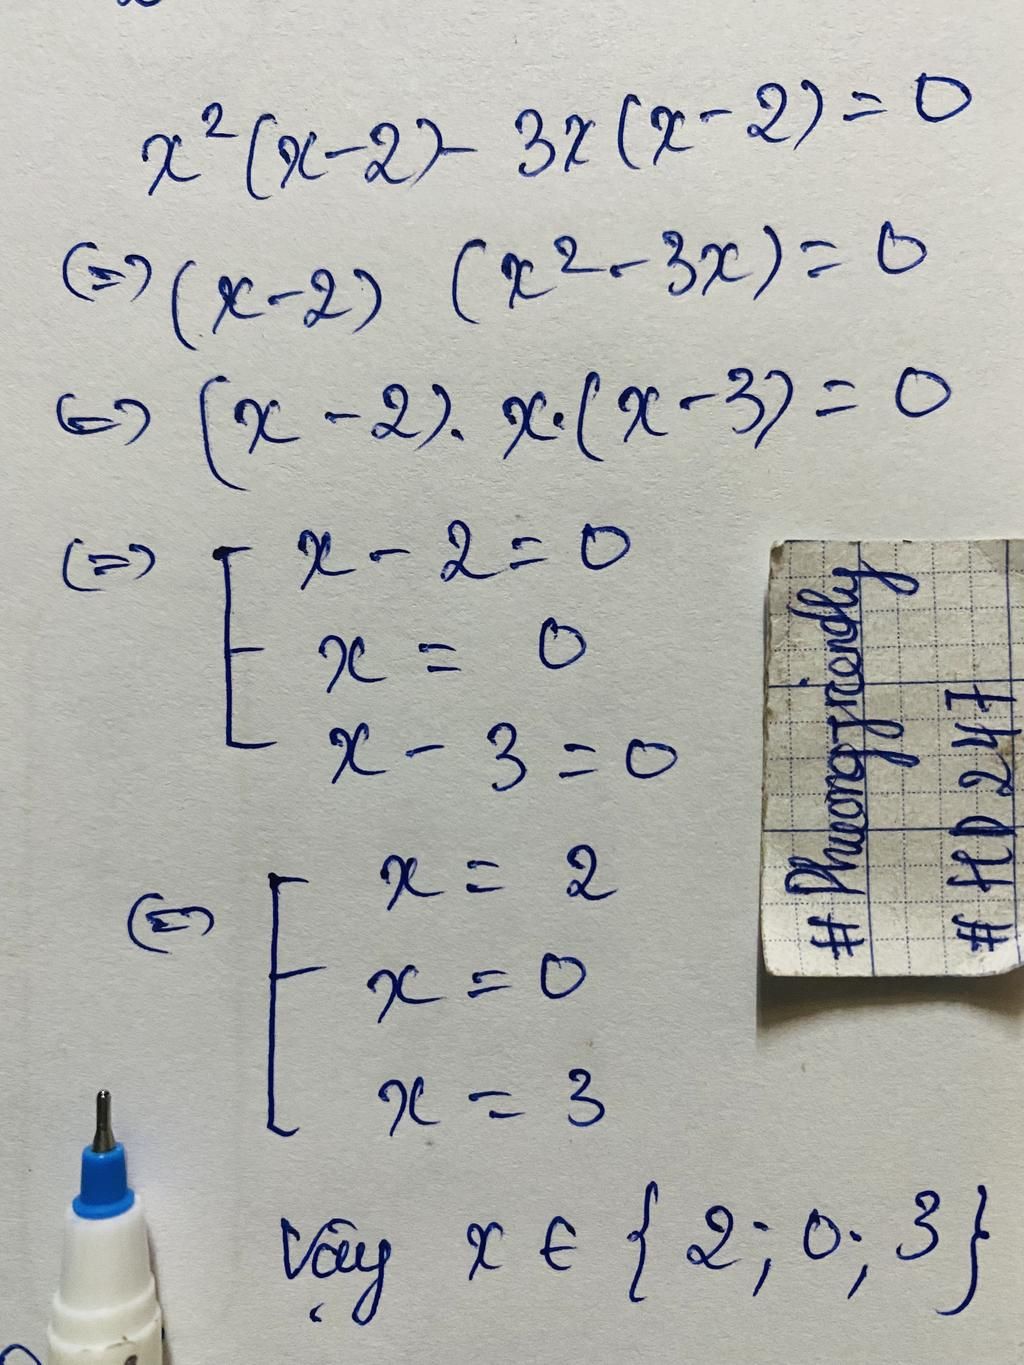 x²(x-2)- 3x(x-2)=0
(=) (x-2) (x²-3x)=0
(=) (x-2). x.(x-3)=0
(=) [ x-2=0
x = 0
x-3=0
(=) [ x = 2
x = 0
x = 3
Vậy x ∈ {2; 0; 3}
#Phuongfriendly
#HD247